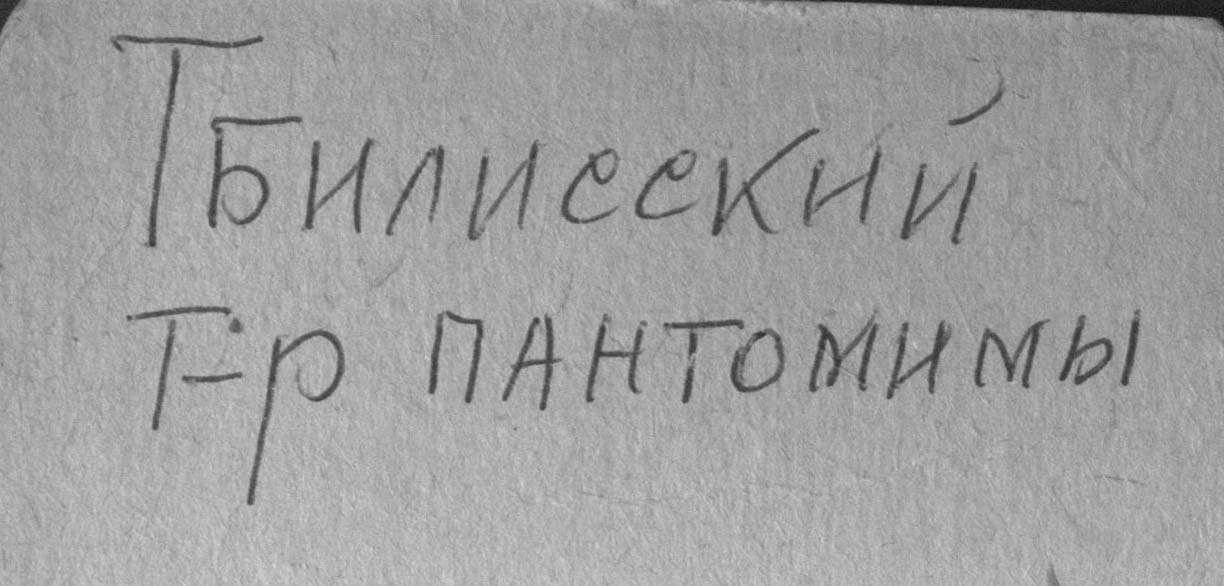 Тбилисский
Т-р пантомимы